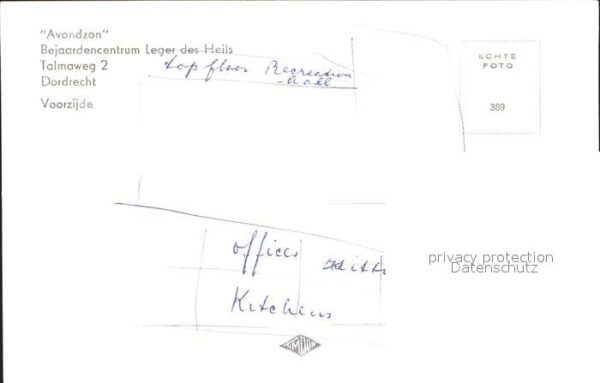 "Avondzon"
Bejaardencentrum Leger des Heils
Talmaweg 2
Dordrecht
Voorzijde
top floor Recreation
-hall
ECHTE
FOTO
369
offices
Kitchins
privacy protection
Datenschutz